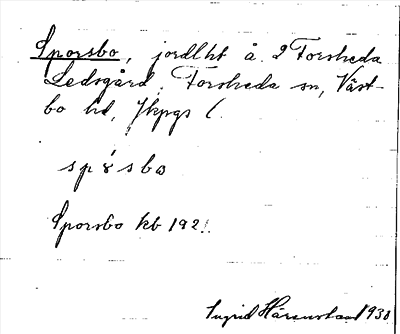 Sporsbo, jordlht å 2 Forsheda
Ledsgård, Forsheda sn, Väst-
bo hd, Jkpgs l.
spósbω
Sporsbo kb 192.
Ingrid 1930